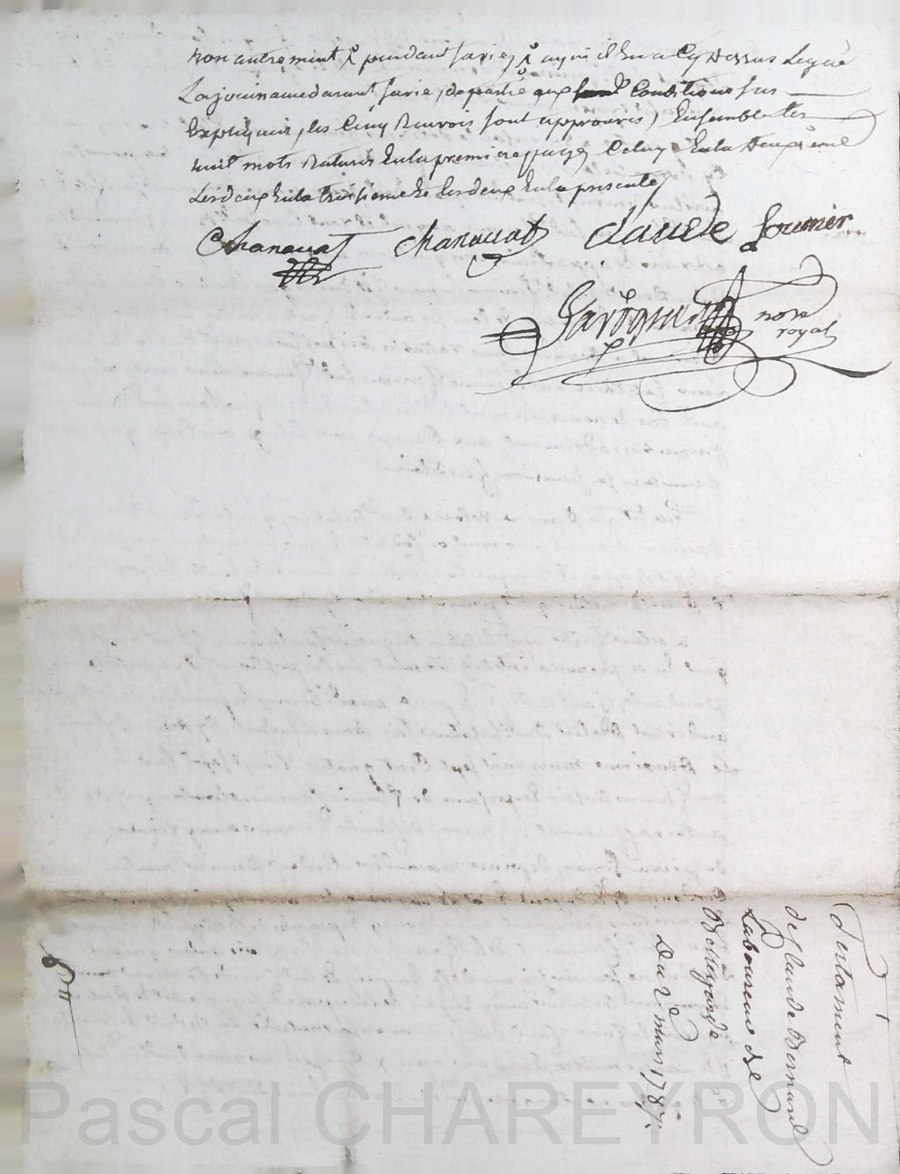 non autrement pendant sa vie, ayant il en a cy dessus legué
La jouissance durant sa vie, de partie aux conditions sus
Expliquées, les cinq Renvois sont approuvés, Ensemble les
huit mots Raturés En la premiere page, Celuy En la deuxième
Les deux En la troisieme & les deux En la presente
Chanavat Chanavat claude fournier
nore
royal
Testament
de Claude Bernard
Laboureur de
Bellegarde
Du 2e mars 1787.
Pascal CHAREYRON